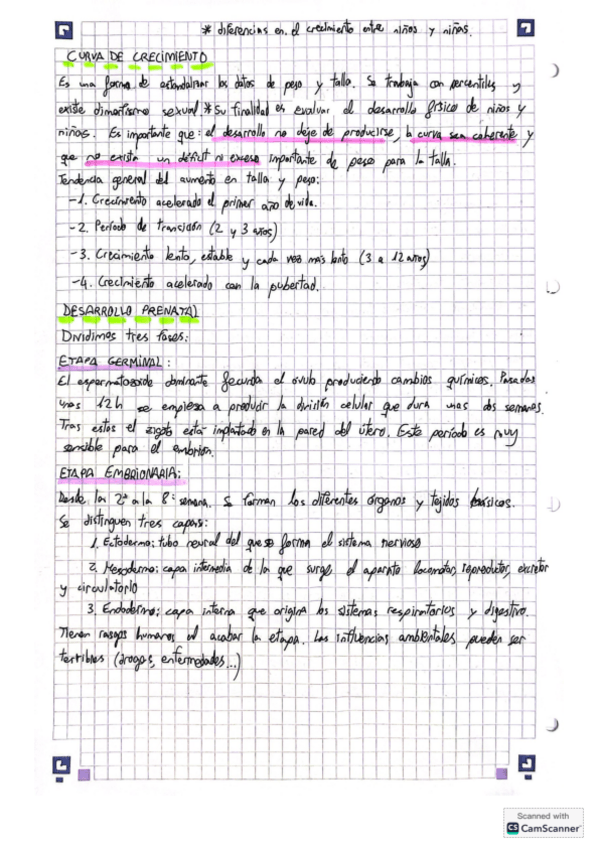 * diferencias en. el crecimiento entre niños y niñas.
CURVA DE CRECIMIENTO
Es una forma de estandalizar los datos de peso y talla. Se trabaja con percentiles y
existe dimorfismo sexual * Su finalidad es evaluar el desarrollo físico de niños y
niñas. Es importante que: el desarrollo no deje de producirse, la curva sea coherente y
que no exista un déficit ni exceso importante de peso para la talla.
Tendencia general del aumento en talla y peso:
-1. Crecimiento acelerado el primer año de vida.
-2. Período de transición (2 y 3 años)
-3. Crecimiento lento, estable y cada vez más lento (3 a 12 años)
-4. Crecimiento acelerado con la pubertad.
DESARROLLO PRENATAL
Dividimos tres fases:
ETAPA GERMINAL:
El espermatozoide dominante fecunda el óvulo produciendo cambios químicos. Pasadas
unas 12h se empieza a producir la división celular que dura unas dos semanas.
Tras estas el zigoto está implantado en la pared del útero. Este período es muy
sensible para el embrión.
ETAPA EMBRIONARIA:
Desde la 2ª a la 8ª semana. Se forman los diferentes órganos y tejidos básicos.
Se distinguen tres capas:
1. Ectodermo: tubo neural del que se forma el sistema nervioso
2. Mesodermo: capa intermedia de la que surge el aparato locomotor, reproductor, excretor
y circulatorio
3. Endodermo: capa interna que origina los sistemas respiratorios y digestivo.
Tienen rasgos humanos al acabar la etapa. Las influencias ambientales pueden ser
terribles (drogas, enfermedades...)
Scanned with
CS CamScanner